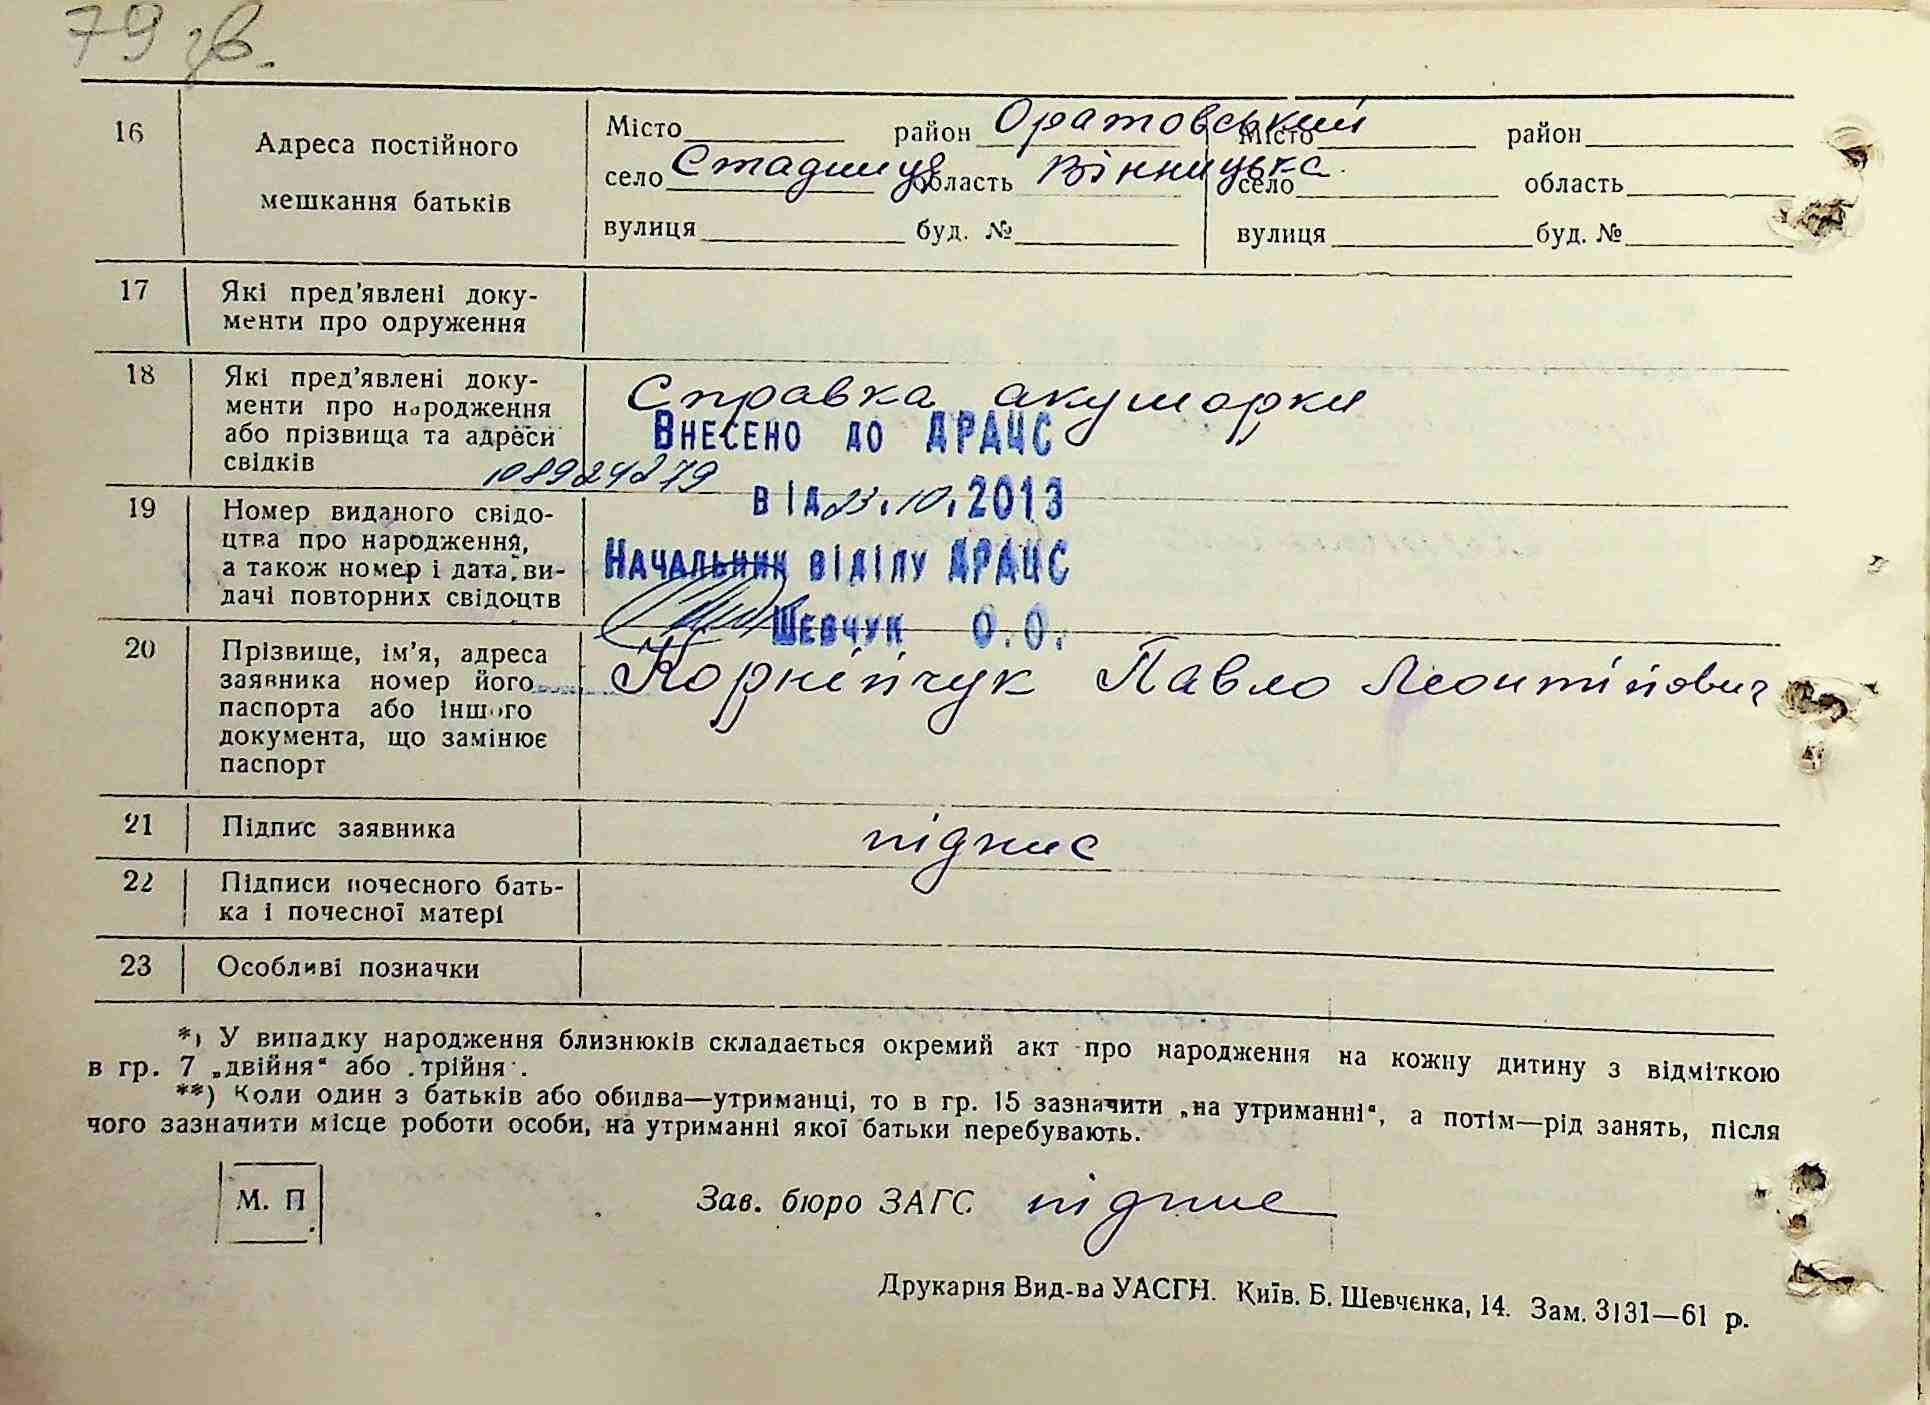 79 зв.
16 Адреса постійного мешкання батьків
Місто район Оратовський Місто район
село Стадниця область Вінницька село область
вулиця буд. № вулиця буд. №
17 Які пред'явлені доку-
менти про одруження
18 Які пред'явлені доку-
менти про народження
або прізвища та адреси
свідків
Справка акушорки
Внесено до ДРАЦС
108924279
від 23.10.2013
19 Номер виданого свідо-
цтва про народження,
а також номер і дата ви-
дачі повторних свідоцтв
Начальник відділу ДРАЦС
Шевчук О.О.
20 Прізвище, ім'я, адреса
заявника номер його
паспорта або іншого
документа, що замінює
паспорт
Корнійчук Павло Леонтійович
21 Підпис заявника підпис
22 Підписи почесного бать-
ка і почесної матері
23 Особливі позначки
*) У випадку народження близнюків складається окремий акт про народження на кожну дитину з відміткою
в гр. 7 „двійня“ або „трійня“.
**) Коли один з батьків або обидва—утриманці, то в гр. 15 зазначити „на утриманні“, а потім—рід занять, після
чого зазначити місце роботи особи, на утриманні якої батьки перебувають.
М. П.
Зав. бюро ЗАГС підпис
Друкарня Вид-ва УАСГН. Київ. Б. Шевченка, 14. Зам. 3131—61 р.